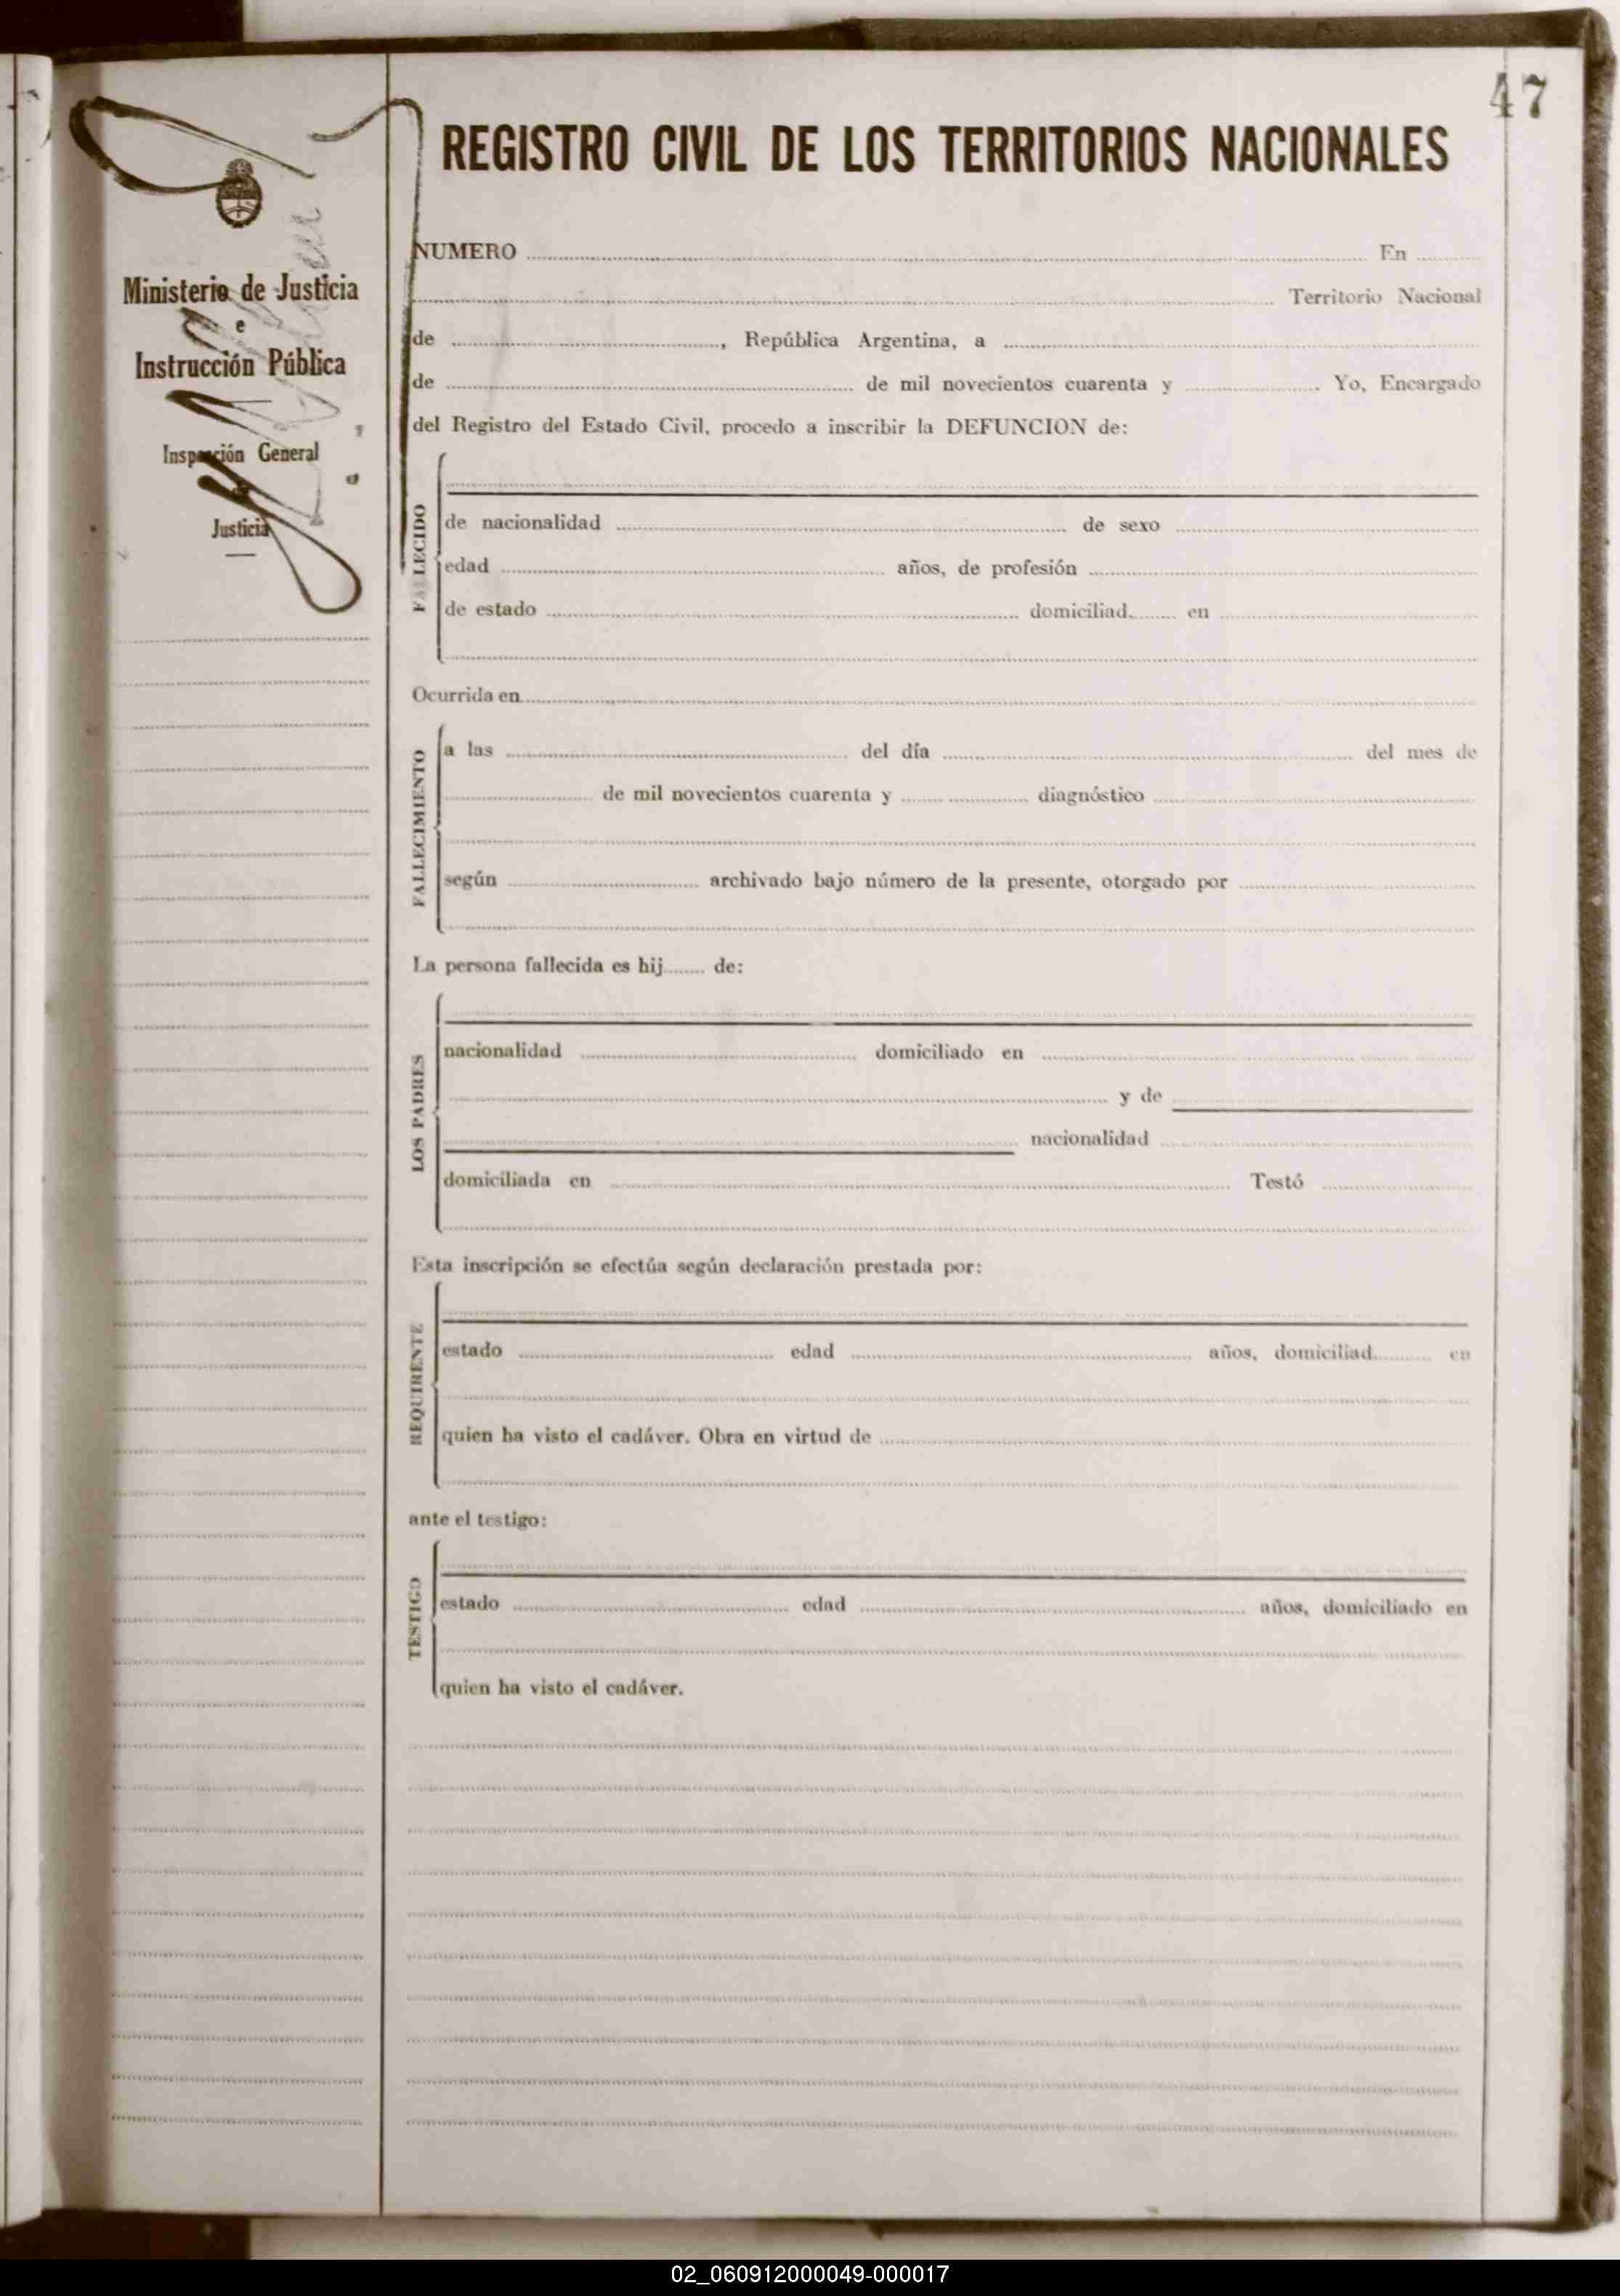 47
REGISTRO CIVIL DE LOS TERRITORIOS NACIONALES
Ministerio de Justicia
e
Instrucción Pública
Inspección General
Justicia
NUMERO ........ En ........
........ Territorio Nacional
de ........, República Argentina, a ........
de ........ de mil novecientos cuarenta y ........ Yo, Encargado
del Registro del Estado Civil, procedo a inscribir la DEFUNCION de:
FALLECIDO
de nacionalidad ........ de sexo ........
edad ........ años, de profesión ........
de estado ........ domiciliad........ en ........
Ocurrida en ........
FALLECIMIENTO
a las ........ del día ........ del mes de
........ de mil novecientos cuarenta y ........ diagnóstico ........
según ........ archivado bajo número de la presente, otorgado por ........
La persona fallecida es hij........ de:
LOS PADRES
nacionalidad ........ domiciliado en ........
........ y de ........
........ nacionalidad ........
domiciliada en ........ Testó ........
Esta inscripción se efectúa según declaración prestada por:
REQUIRENTE
estado ........ edad ........ años, domiciliad........ en
quien ha visto el cadáver. Obra en virtud de ........
ante el testigo:
TESTIGO
estado ........ edad ........ años, domiciliado en
quien ha visto el cadáver.
02_060912000049-000017